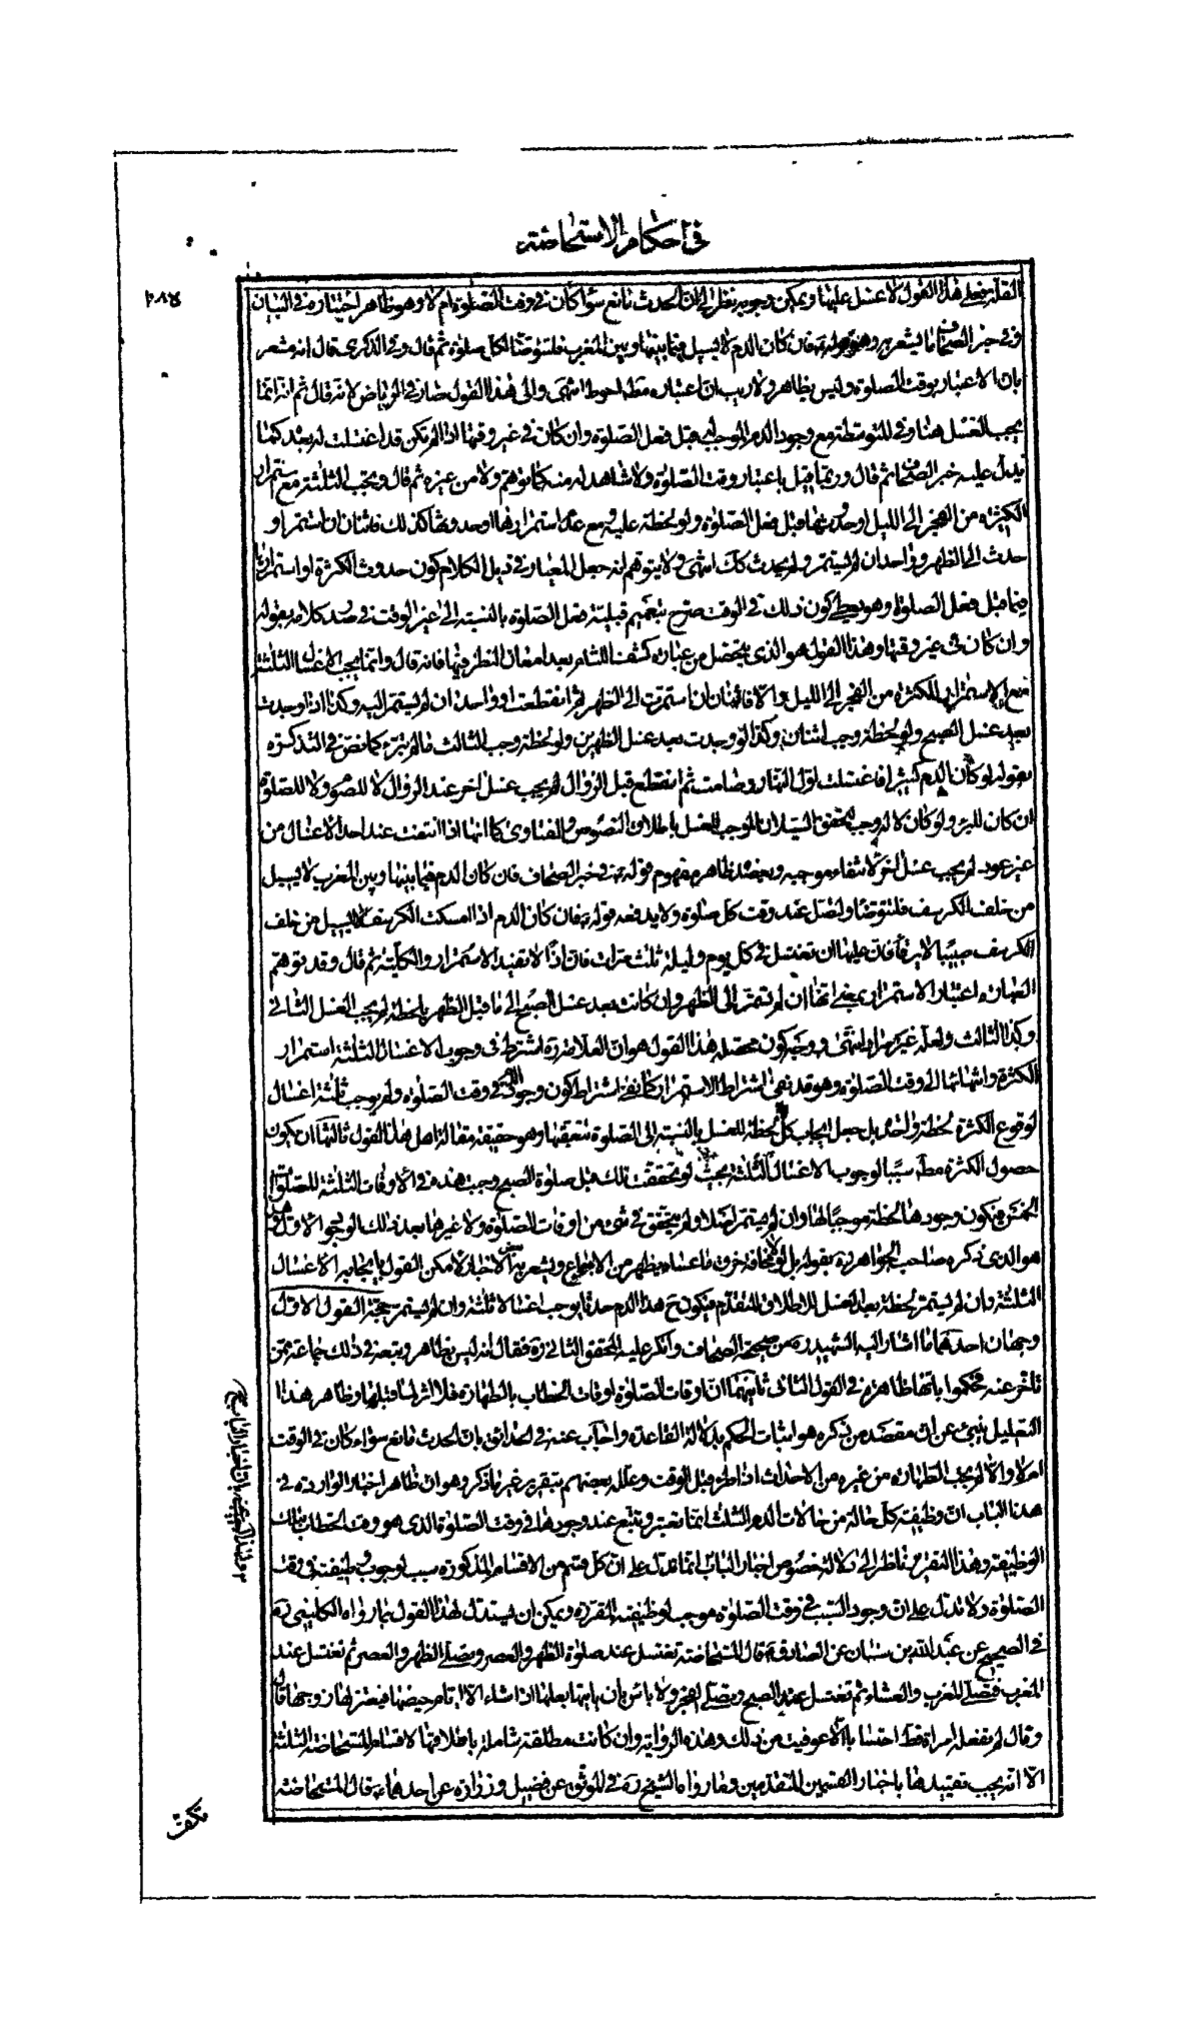 في احكام الاستحاضة
٢٨٥
القلة فعلى هذا القول لا غسل عليها ويمكن وجوبه نظرا الى ان الحدث مانع سواء كان في وقت الصلوة ام لا وهو ظاهر اختياره في البيان
وفي خبر الصحاف ما يشعر به وهو قوله فان كان الدم لا يسيل فيما بينها وبين المغرب فلتتوضأ لكل صلوة ثم قال وفي الذكرى قال انه مشعر
بان الاعتبار بوقت الصلوة وليس بظاهر ولا ريب ان اعتباره مطلقا احوط انتهى والى هذا القول صار في الرياض لانه قال ثم انه انما
يجب الغسل هنا وفي المتوسطة مع وجود الدم الموجب له قبل فعل الصلوة وان كان في غير وقتها اذا لم تكن قد اغتسلت له بعده كما
يدل عليه خبر الصحاف ثم قال وربما قيل باعتبار وقت الصلوة ولا شاهد له منه كما توهم ولا من غيره ثم قال ويجب الثلثة مع استمرار
الكثيرة من الفجر الى الليل او حدوثها قبل فعل الصلوة ولو لحظة عليه ومع عدم استمرارها او حدوثها كذلك فاثنان ان استمر او
حدث الى الظهر وواحد ان لم يستمر ولم يحدث كك انتهى ولا يتوهم انه جعل المعيار في ذيل الكلام كون حدوث الكثرة او استمرارها
فيما قبل فعل الصلوة وهو يعطي كون ذلك في الوقت صرح بتعميم قبلية فعل الصلوة بالنسبة الى غير الوقت في صدر كلامه بقوله
وان كان في غير وقتها وهذا القول هو الذي يتحصل من عبارة كشف اللثام بعد امعان النظر فيها فانه قال وانما يجب الاغسال الثلثة
مع الاستمرار للكثرة من الفجر الى الليل والا فاثنان ان استمرت الى الظهر ثم انقطعت او واحد ان لم يستمر اليه وكذا اذا وجدت
بعد غسل الصبح ولو لحظة وجب اثنان وكذا لو وجدت بعد غسل الظهرين ولو لحظة وجب الثالث ما لم تبرء كما نص في التذكرة
بقوله لو كان الدم كثيرا فاغتسلت اول النهار وصامت ثم انقطع قبل الزوال لم يجب غسل اخر عند الزوال لا للصوم ولا للصلوة
ان كان للبرء ولو كان لا له وجب لتحقق السيلان الموجب للغسل باطلاق النصوص والفتاوى كما انها اذا انتفت عند احد الاغسال من
غير عود لم يجب غسل اخر لانتفاء موجبه ويعضد ظاهره مفهوم قوله في خبر الصحاف فان كان الدم فيما بينها وبين المغرب لا يسيل
من خلف الكرسف فلتتوضأ ولتصل عند وقت كل صلوة ولا يدفعه قوله فان كان الدم اذا امسكت الكرسف يسيل من خلف
الكرسف صبيبا لا يرقأ فان عليها ان تغتسل في كل يوم وليلة ثلث مرات فان اذا لا تفيد الاستمرار والكلية ثم قال وقد توهم
العبارة اعتبار الاستمرار بمعنى انها ان لم تستمر الى الظهر وان كانت بعد غسل الصبح الى ما قبل الظهر بلحظة لم يجب الغسل الثاني
وكذا الثالث ولعله غير مراد انتهى ووجه كون محصله هذا القول هو ان العلامة ره اشترط في وجوب الاغسال الثلثة استمرار
الكثرة وانتهائها الى وقت الصلوة وهو قد نفى اشتراط الاستمرار كما نفى اشتراط كون وجود الكثرة في وقت الصلوة ولم يوجب ثلثة اغسال
لوقوع الكثرة لحظة واحدة بل جعل ايجاب كل لحظة للغسل بالنسبة الى الصلوة تتعقبها وهو حقيقة مقالة اهل هذا القول ثالثها ان يكون
حصول الكثرة مطلقا سببا لوجوب الاغسال الثلثة بحيث لو تحققت تلك قبل صلوة الصبح وجب هذه في الاوقات الثلثة للصلوات
الخمس فيكون وجودها لحظة موجبا لها وان لم يستمر اصلا ولم يتحقق في شئ من اوقات الصلوة ولا غيرها بعد ذلك الوجود الاول وهذا
هو الذي ذكره صاحب الجواهر ره بقوله بل لولا مخافة خرق ما عساه يظهر من الاجماع ويشعر به بعض الاخبار لامكن القول بايجابه الاغسال
الثلثة وان لم يستمر لحظة بعد الغسل للاطلاق المتقدم فيكون ح هذا الدم حدثا يوجب اغسالا ثلثة وان لم يستمر حجة القول الاول
وجهان احدهما ما اشار اليه الشهيد ره من صحيحة الصحاف وانكر عليه المحقق الثاني ره فقال انه ليس بظاهر وتبعه في ذلك جماعة ممن
تاخر عنه فحكموا بانها ظاهرة في القول الثاني ثانيهما ان اوقات الصلوة اوقات الخطاب بالطهارة فلا اثر لما قبلها وظاهر هذا
التعليل ينبئ عن ان مقصد من ذكره هو اثبات الحكم بدلالة القاعدة واجاب عنه في الحدائق بان الحدث مانع سواء كان في الوقت
ام لا والا لم يجب الطهارة من غيره من الاحداث اذا طرء قبل الوقت وعلله بعضهم بتقرير غير ما ذكر وهو ان ظاهر اخبار الواردة في
هذا الباب ان وظيفة كل حالة من حالات الدم الثلث انما تعتبر وتتبع عند وجودها في وقت الصلوة الذي هو وقت الخطاب بتلك
الوظيفة وهذا التقرير ناظر الى دلالة خصوص اخبار الباب انما تدل على ان كل قسم من الاقسام المذكورة سبب لوجوب وظيفته في وقت
الصلوة ولا تدل على ان وجود السبب في وقت الصلوة موجب لوظيفته المقررة ويمكن ان يستدل لهذا القول بما رواه الكليني ره
في الصحيح عن عبد الله بن سنان عن الصادق قال المستحاضة تغتسل عند صلوة الظهر والعصر وتصلي الظهر والعصر ثم تغتسل عند
المغرب فتصلي المغرب والعشاء ثم تغتسل عند الصبح وتصلي الفجر ولا باس بان ياتيها بعلها اذا شاء الا ايام حيضها فيعتزلها زوجها قال
وقال لم تفعله امراة قط احتسابا الا عوفيت من ذلك وهذه الرواية وان كانت مطلقة شاملة باطلاقها لاقسام المستحاضة الثلثة
الا انه يجب تقييدها باخبار القسمين المتقدمين وما رواه الشيخ ره في الموثق عن فضيل وزرارة عن احدهما قال المستحاضة
تكف